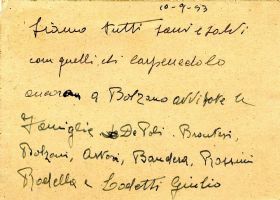 10-9-43
Siamo tutti sani e salvi
con quelli di Carpenedolo
ancora a Bolzano avvisate le
famiglie De Poli. Bronteri,
Bolzoni, Astori, Bandera, Rossini
Rodella e Lodetti Giulio